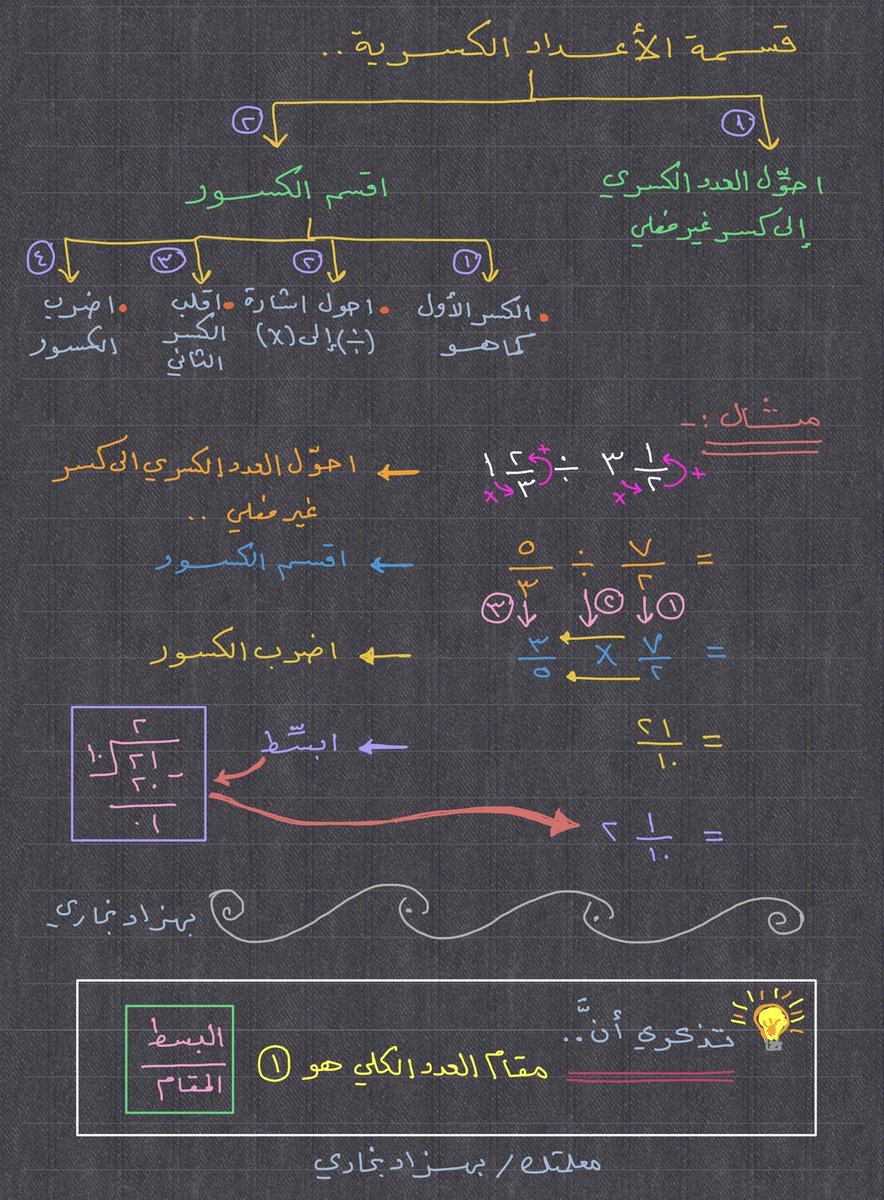 قسمة الأعداد الكسرية ..
١ ٢
احوّل العدد الكسري
إلى كسر غير فعلي
اقسم الكسور
١ ٢ ٣ ٤
• الكسر الأول
كما هو
• احول اشارة
(÷) إلى (×)
• اقلب
الكسر
الثاني
• اضرب
الكسور
مثال :-
٣ ١/٢ ÷ ١ ٢/٣ ← احوّل العدد الكسري الى كسر
+ × + ×
غير فعلي ..
= ٧/٢ ÷ ٥/٣ ← اقسم الكسور
١ ٢ ٣
= ٧/٢ × ٣/٥ ← اضرب الكسور
= ٢١/١٠ ← ابسّط
٢
١٠ ٢١
٢٠ -
٠١
= ٢ ١/١٠
بهزاد بخاري
تذكري أنَّ..
مقام العدد الكلي هو ١
البسط
المقام
معلمتك / بهزاد بخاري